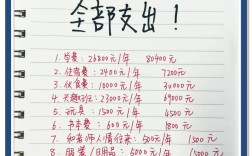 全部支出！
1. 学费：26800元/年 80400元
2. 住宿费：2400元/年 7200元
3. 伙食费：10000元/年 30000元
4. 兴趣班：23000元/年 69000元
5. 玩具：1500元/年 4500元
6. 书本费：600元/年 1800元
7. 和老师人情往来：500元/年 1500元
8. 服装/日用品：